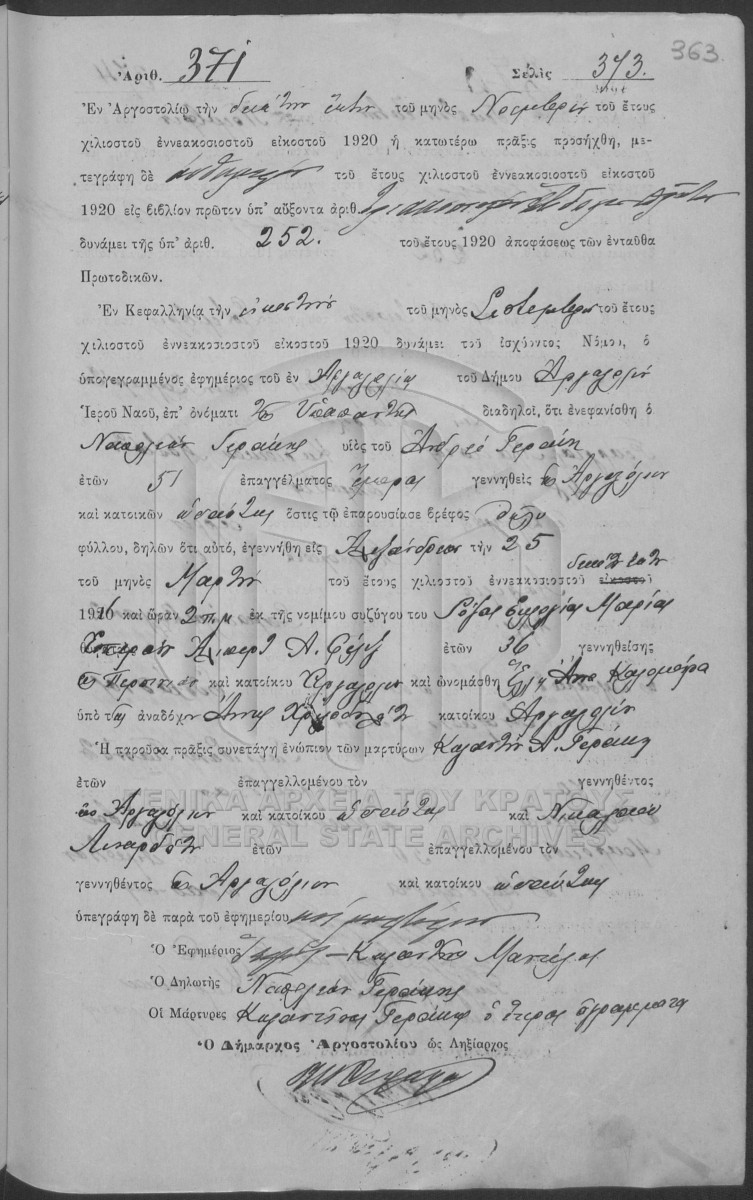 363.
Ἀριθ. 371 Σελὶς 373.
Ἐν Ἀργοστολίῳ τὴν δεκάτην ἕκτην τοῦ μηνὸς Νοεμβρίου τοῦ ἔτους
χιλιοστοῦ ἐννεακοσιοστοῦ εἰκοστοῦ 1920 ἡ κατωτέρω πρᾶξις προσήχθη, με-
τεγράφη δὲ αὐθημερὸν τοῦ ἔτους χιλιοστοῦ ἐννεακοσιοστοῦ εἰκοστοῦ
1920 εἰς βιβλίον πρῶτον ὑπ' αὔξοντα ἀριθ.
δυνάμει τῆς ὑπ' ἀριθ. 252. τοῦ ἔτους 1920 ἀποφάσεως τῶν ἐνταῦθα
Πρωτοδικῶν.
Ἐν Κεφαλληνίᾳ τὴν εἰκοστὴν τοῦ μηνὸς Σεπτεμβρίου τοῦ ἔτους
χιλιοστοῦ ἐννεακοσιοστοῦ εἰκοστοῦ 1920 δυνάμει τοῦ ἰσχύοντος Νόμου, ὁ
ὑπογεγραμμένος ἐφημέριος τοῦ ἐν Ἀργοστολίῳ τοῦ Δήμου Ἀργοστολίου
Ἱεροῦ Ναοῦ, ἐπ' ὀνόματι τῆς Ὑπαπαντῆς διαδηλοῖ, ὅτι ἐνεφανίσθη ὁ
Ναπολέων Γεράκης υἱὸς τοῦ Ἀνδρέο Γεράκη
ἐτῶν 51 ἐπαγγέλματος ἔμπορος γεννηθεὶς ἐν Ἀργοστόλιον
καὶ κατοικῶν ὡσαύτως ὅστις τῷ ἐπαρουσίασε βρέφος θήλυ
φύλλου, δηλῶν ὅτι αὐτό, ἐγεννήθη εἰς Ἀλεξάνδρειαν τὴν 25
τοῦ μηνὸς Μαρτίου τοῦ ἔτους χιλιοστοῦ ἐννεακοσιοστοῦ εἰκοστοῦ
1916 καὶ ὥραν 2 π.μ ἐκ τῆς νομίμου συζύγου του Μαρίας
Ἀ. ἐτῶν 36 γεννηθείσης
καὶ κατοίκου Ἀργοστόλιον καὶ ὠνομάσθη Ἕλλη
ὑπὸ τῆς ἀναδόχου κατοίκου Ἀργοστολίου
Ἡ παροῦσα πρᾶξις συνετάγη ἐνώπιον τῶν μαρτύρων Κωσταντῆ Α. Γεράκη
ἐτῶν ἐπαγγελλομένου τὸν γεννηθέντος
ἐν Ἀργοστόλιον καὶ κατοίκου ὡσαύτως καὶ Νικολάου
ἐτῶν ἐπαγγελλομένου τὸν
γεννηθέντος ἐν Ἀργοστόλιον καὶ κατοίκου ὡσαύτως
ὑπεγράφη δὲ παρὰ τοῦ ἐφημερίου καὶ μαρτύρων
Ὁ Ἐφημέριος
Ὁ Δηλωτὴς Ναπολέων Γεράκης
Οἱ Μάρτυρες Κωσταντῖνος Γεράκης ὁ ἕτερος ἀγράμματος
Ὁ Δήμαρχος Ἀργοστολίου ὡς Ληξίαρχος
ΓΕΝΙΚΑ ΑΡΧΕΙΑ ΤΟΥ ΚΡΑΤΟΥΣ
GENERAL STATE ARCHIVES